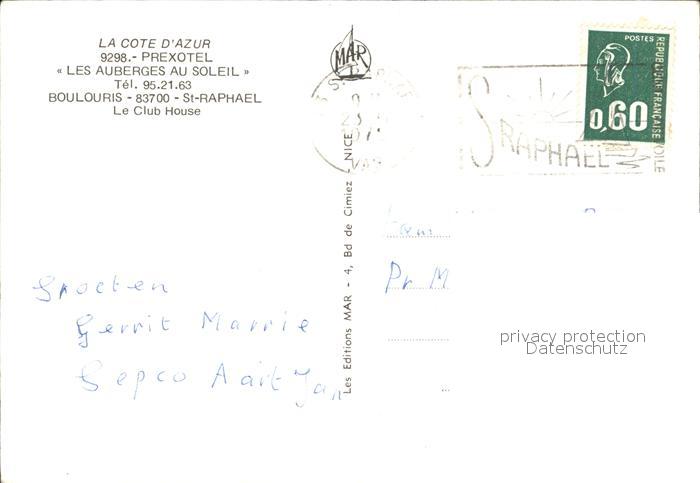 LA COTE D'AZUR
9298.- PREXOTEL
« LES AUBERGES AU SOLEIL »
Tél. 95.21.63
BOULOURIS - 83700 - St-RAPHAEL
Le Club House
MAR
POSTES
REPUBLIQUE FRANÇAISE
0,60
VAR
S RAPHAEL
Les Editions MAR - 4, Bd de Cimiez, NICE
Fam
Pr M
Groeten
Gerrit Marrie
Sepco Aart Jan
privacy protection
Datenschutz